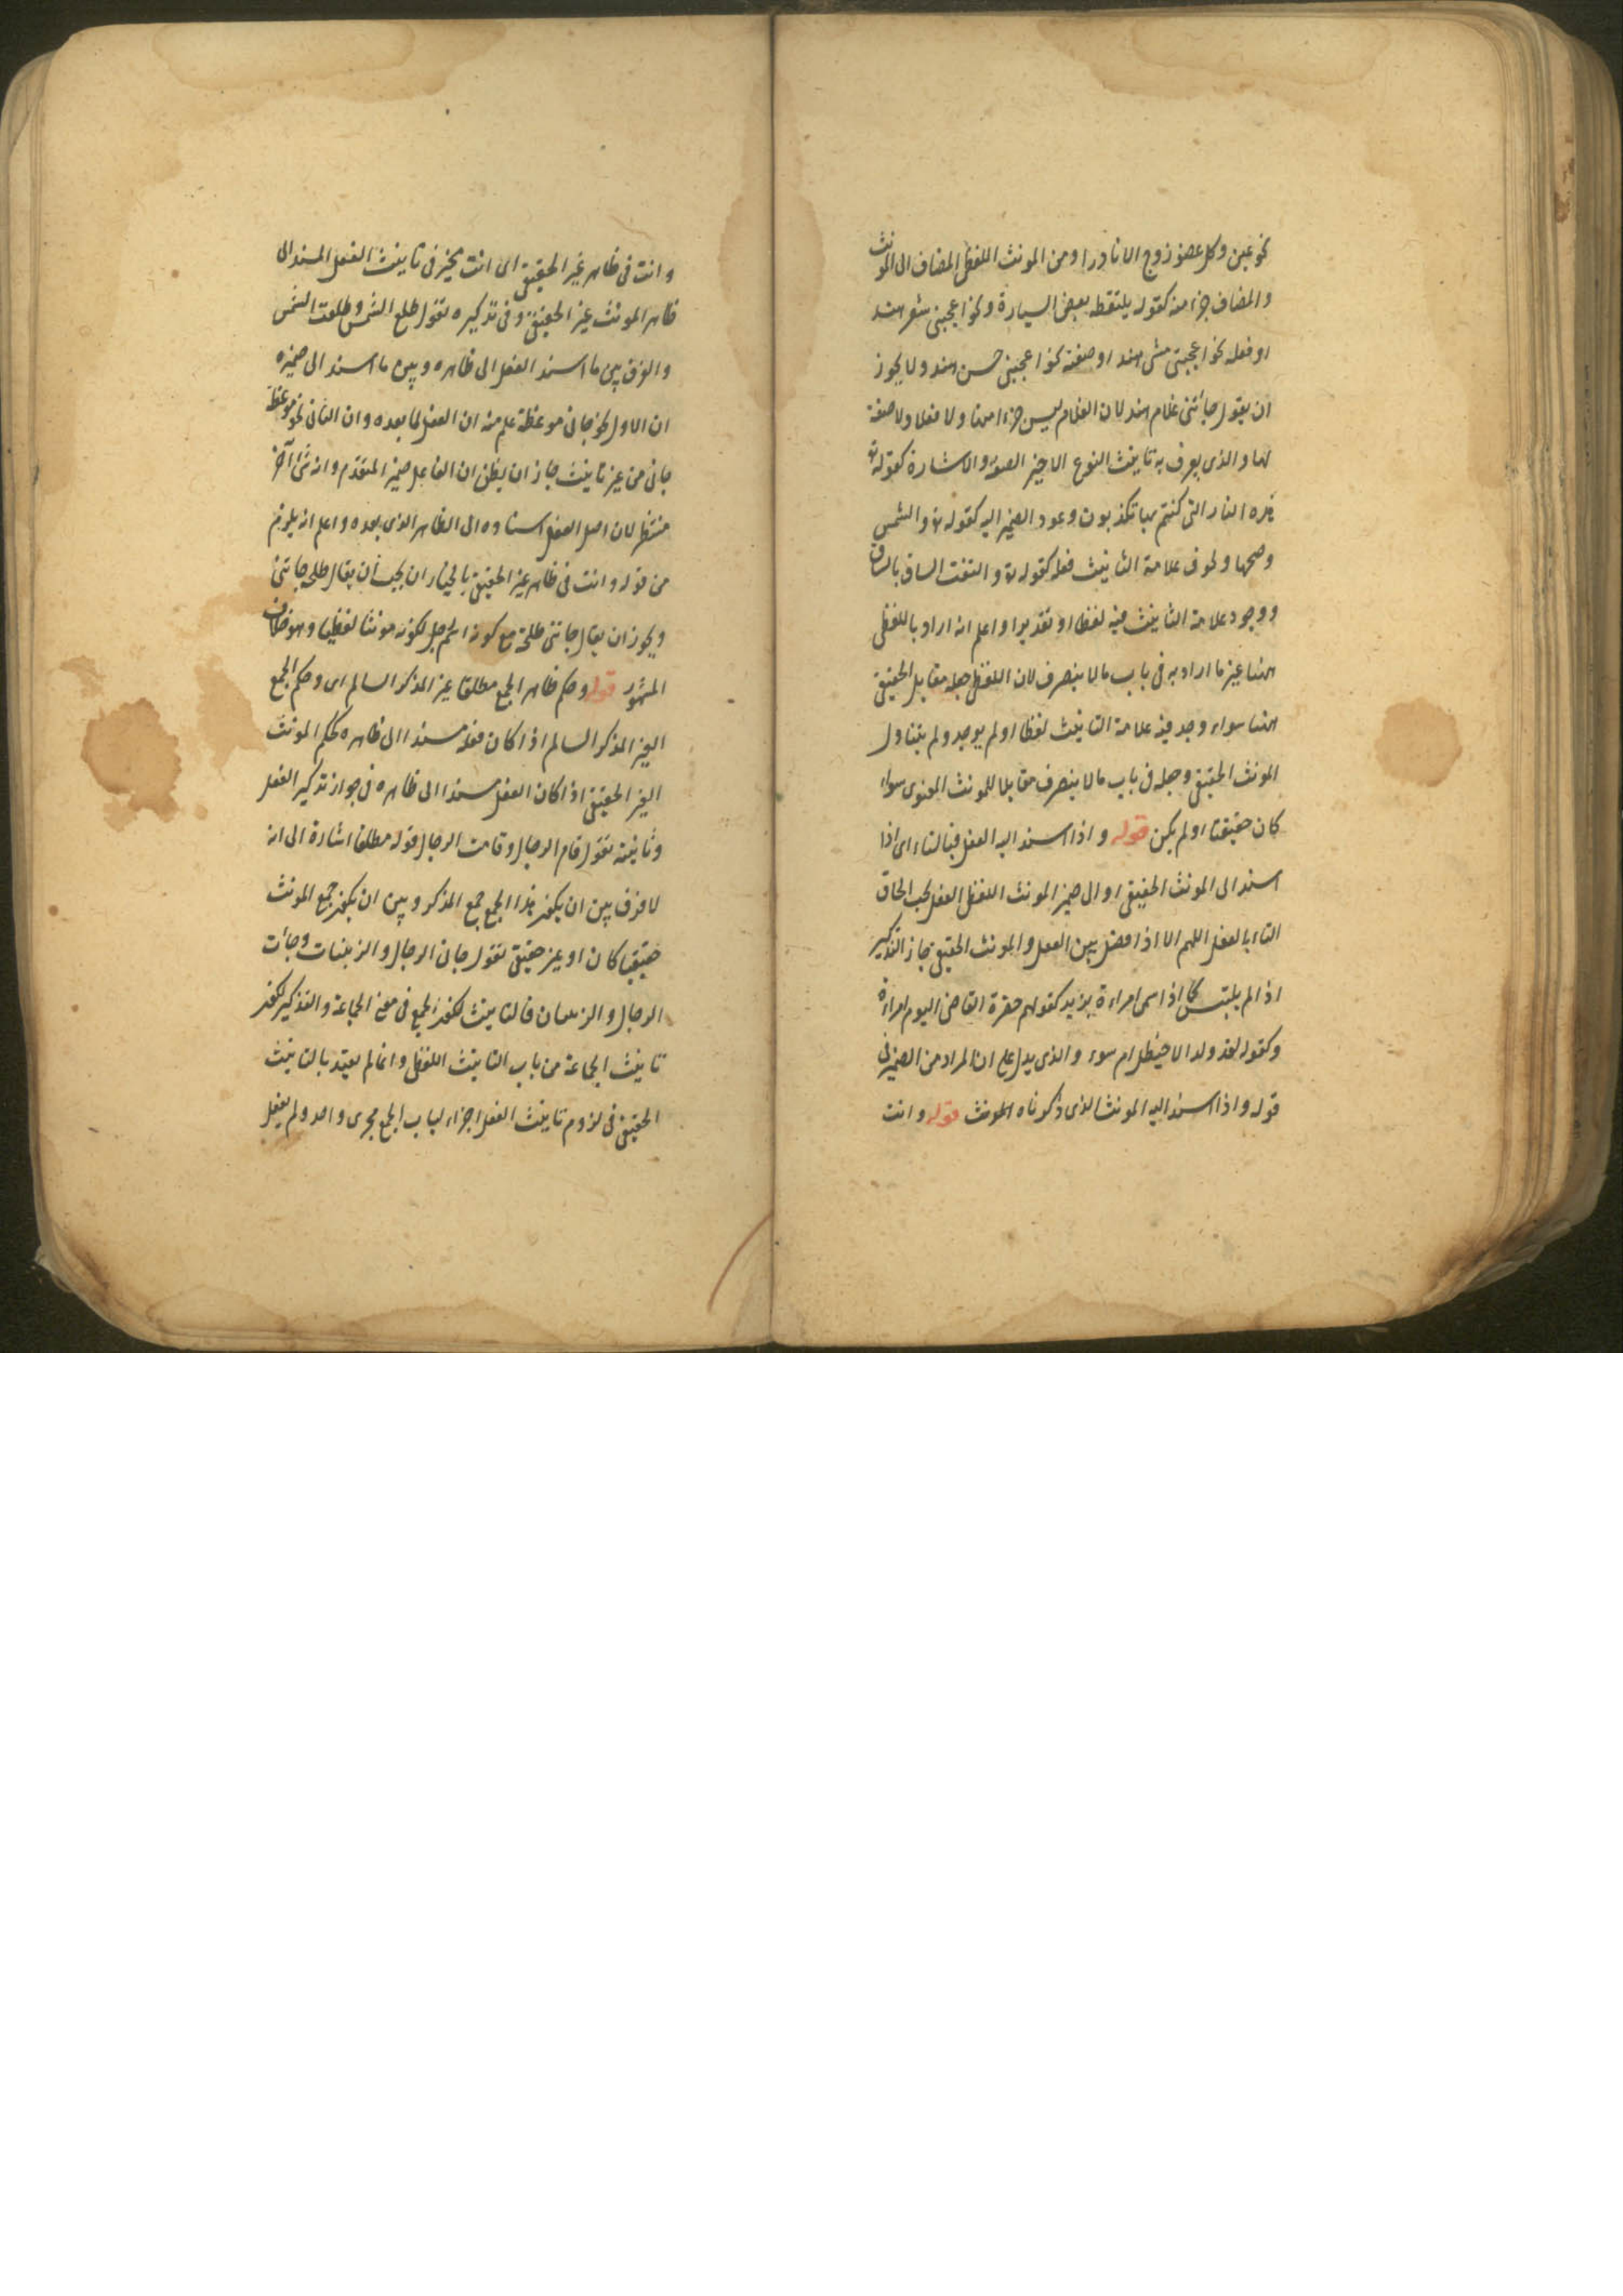 نحو عين وكل عضو زوج الا نادرا ومن المونث اللفظى المضاف الى المونث
والمضاف جزء منه كقوله يلتقطه بعض السيارة ونحو اعجبنى شعر هند
او فعله نحو اعجبنى مشى هند او صفته نحو اعجبنى حسن هند ولا يجوز
ان يقول جاءتنى غلام هند لان الغلام ليس جزءا منها ولا فعلا ولا صفة
لها والذى يعرف به تانيث النوع الاخير الصفة والاشارة كقوله تع
هذه النار التى كنتم بها تكذبون وعود الضمير اليه كقوله تع والشمس
وضحيها ولحوق علامة التانيث فعله كقوله تع والتفت الساق بالساق
ووجود علامة التانيث فيه لفظا او تقديرا واعلم انه اراد باللفظى
ههنا غير ما اراد به فى باب ما لا ينصرف لان اللفظى جعله مقابل الحقيقى
ههنا سواء وجد فيه علامة التانيث لفظا او لم يوجد ولم يتناول
المونث الحقيقى وجعله فى باب ما لا ينصرف مقابلا للمونث المعنوى سواء
كان حقيقيا او لم يكن قوله واذا اسند اليه الفعل فبالتاء اى اذا
اسند الى المونث الحقيقى او الى ضمير المونث اللفظى الفعل يجب الحاق
التاء بالفعل اللهم الا اذا فصل بين الفعل والمونث الحقيقى جاز التذكير
اذا لم يلتبس كما اذا سمى امراءة بزيد كقولهم حضرة القاضى اليوم امراءة
وكقوله لقد ولد الاخيطل ام سوء والذى يدل على ان المراد من الضمير فى
قوله واذا اسند اليه المونث الذى ذكرناه المونث قوله وانت
وانت فى ظاهر غير الحقيقى اى انت مخير فى تانيث الفعل المسند الى
ظاهر المونث غير الحقيقى وفى تذكيره تقول طلع الشمس وطلعت الشمس
والفرق بين ما اسند الفعل الى ظاهره وبين ما اسند الى ضميره
ان الاول نحو جانى موعظة علم منه ان الفعل لما بعده وان الثانى نحو موعظة
جانى من غير تانيث جاز ان يظن ان الفاعل ضمير المتقدم وانه شئ آخر
منتظر لان اصل الفعل اسناده الى الظاهر الذى بعده واعلم انه يلزم
من قوله وانت فى ظاهر غير الحقيقى بالخيار ان يجب أن يقال طلحة جاتنى
ويجوز ان يقال جاتنى طلحة مع كونه اسم رجل لكونه مونثا لفظيا وهو خلاف
المشهور قوله وحكم ظاهر الجمع مطلقا غير المذكر السالم اى وحكم الجمع
الغير المذكر السالم اذا كان فعله مسندا الى ظاهره كحكم المونث
الغير الحقيقى اذا كان الفعل مسندا الى ظاهره فى جواز تذكير الفعل
وتانيثه تقول قام الرجال وقامت الرجال قوله مطلقا اشارة الى انه
لا فرق بين ان يكون هذا الجمع جمع المذكر وبين ان يكون جمع المونث
حقيقيا كان او غير حقيقى تقول جانى الرجال والزينبات وجاءت
الرجال والزينبات فالتانيث لكون الجمع فى معنى الجماعة والتذكير لكون
تانيث الجماعة من باب التانيث اللفظى وانما لم يعتد بالتانيث
الحقيقى فى لزوم تانيث الفعل اجراء لباب الجمع مجرى واحد ولم يفعل